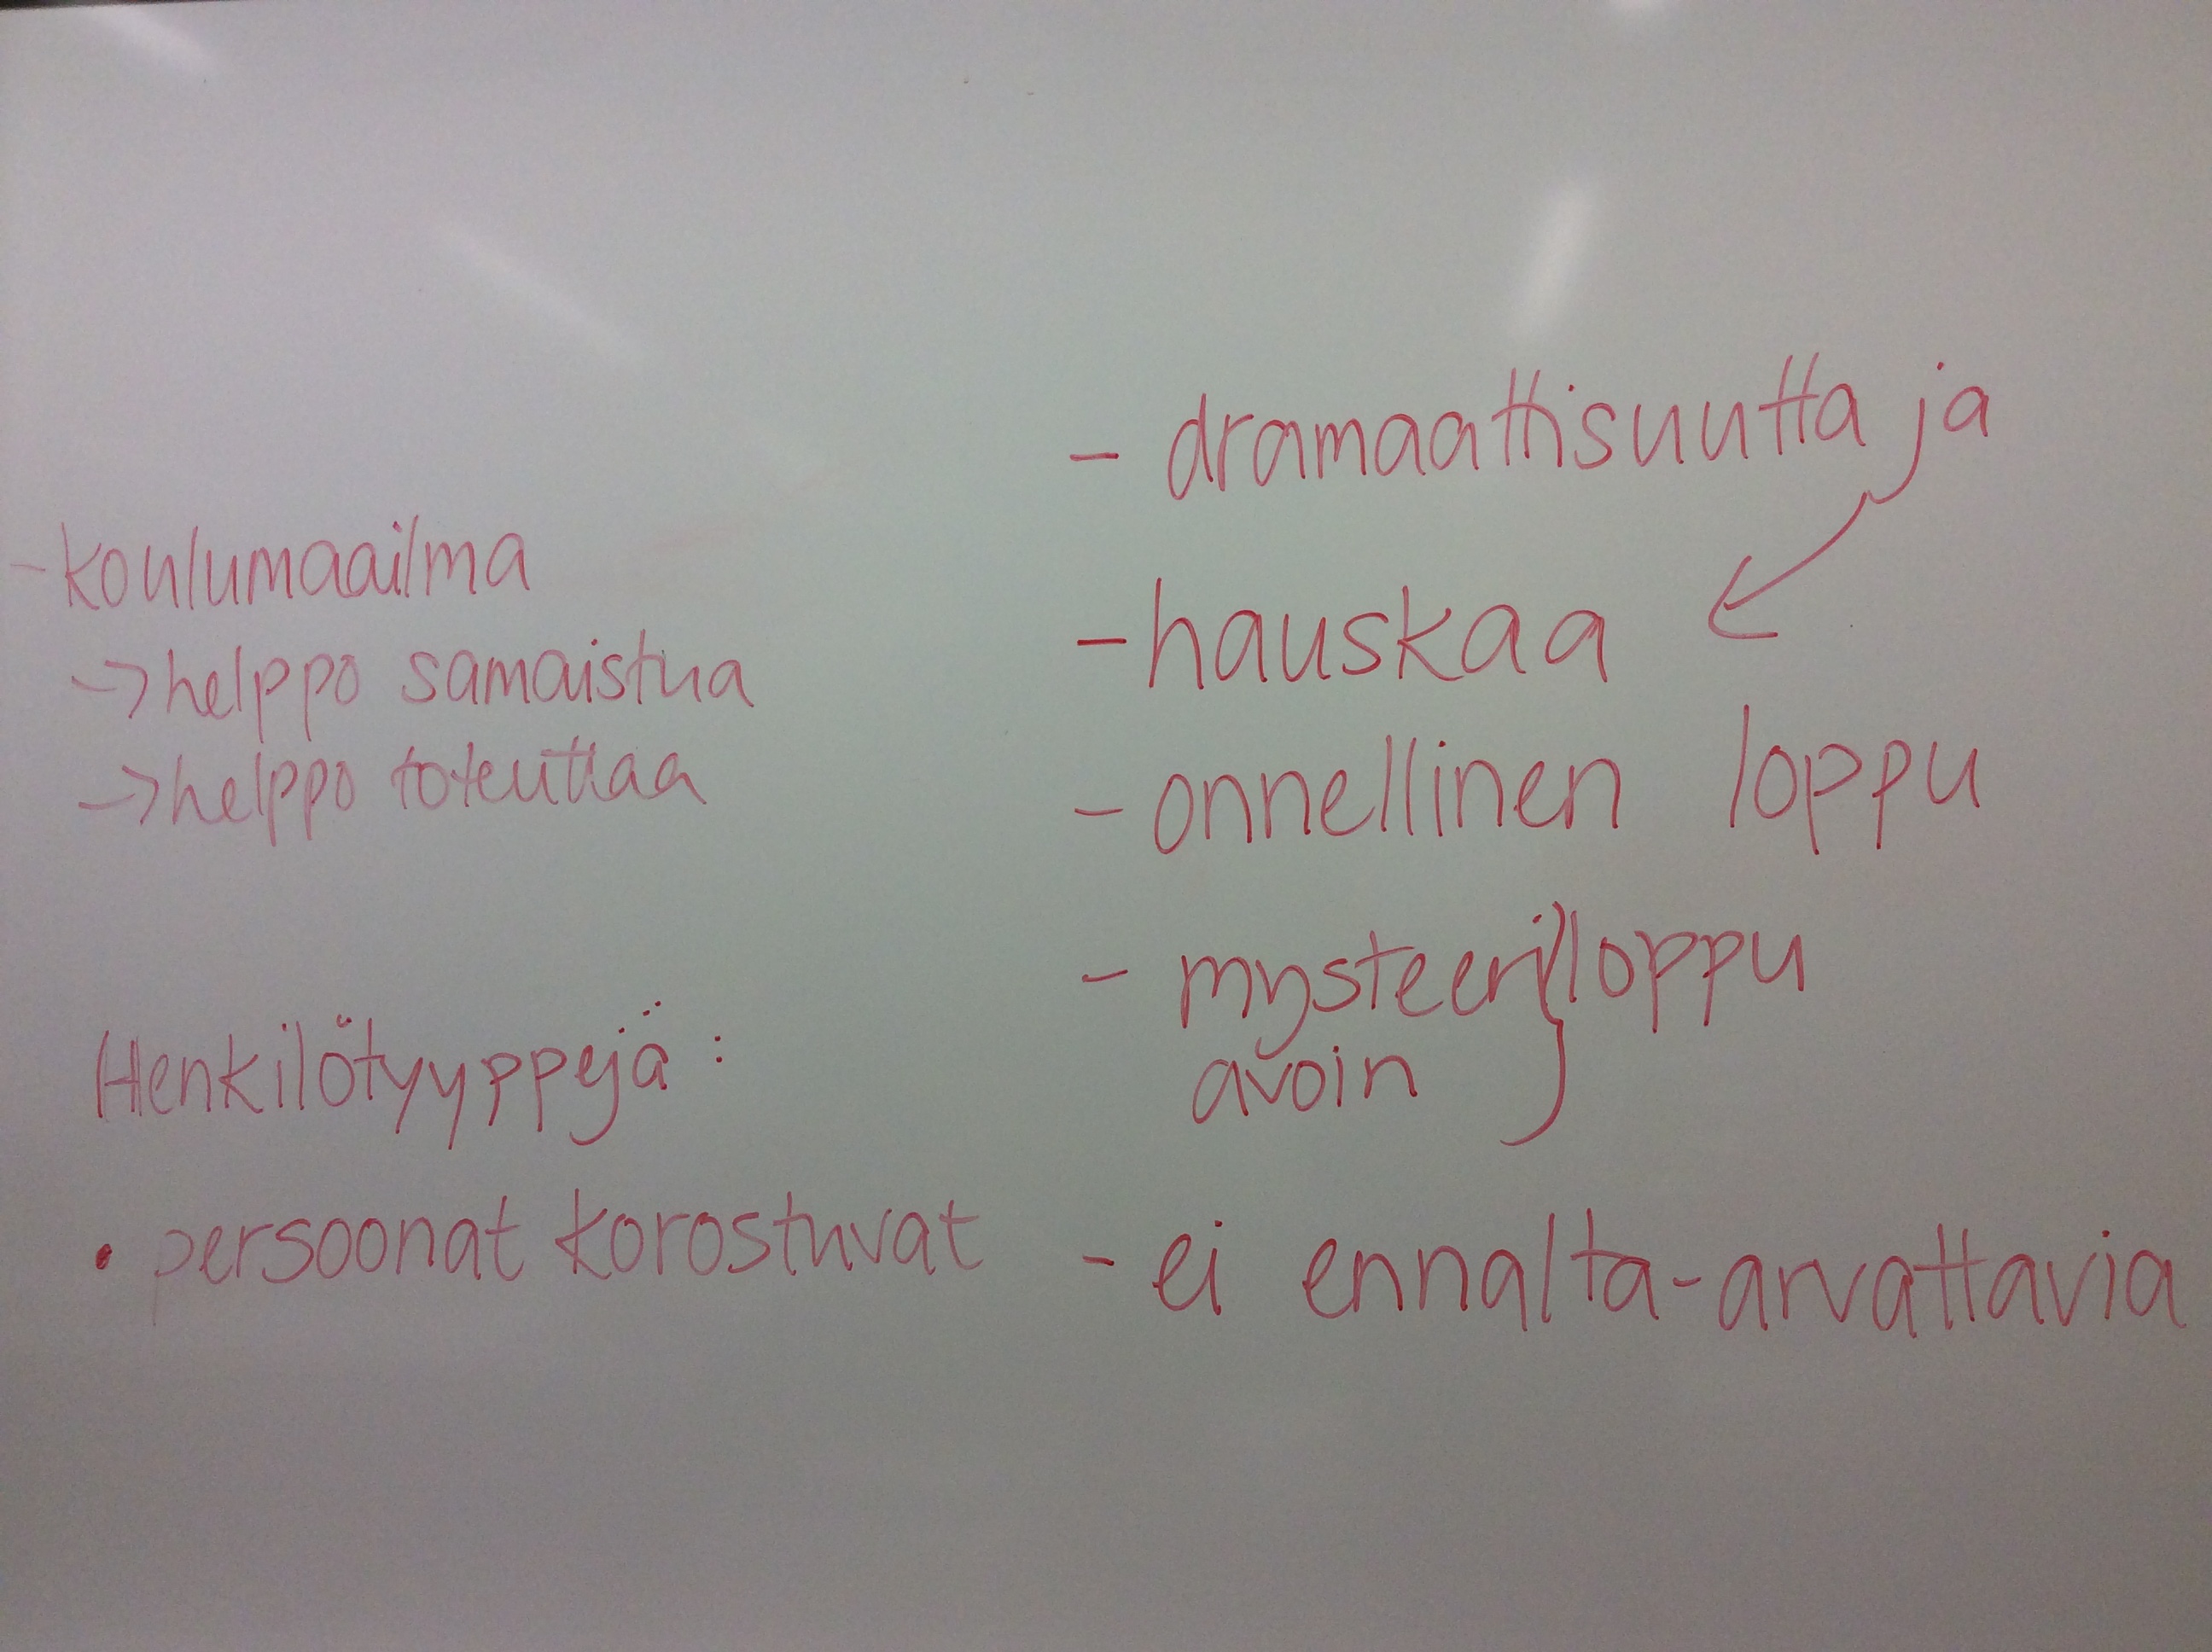 - koulumaailma
-> helppo samaistua
-> helppo toteuttaa
Henkilötyyppejä :
• persoonat korostuvat
- dramaattisuutta ja
- hauskaa
- onnellinen loppu
- mysteeri } loppu
avoin
- ei ennalta-arvattavia